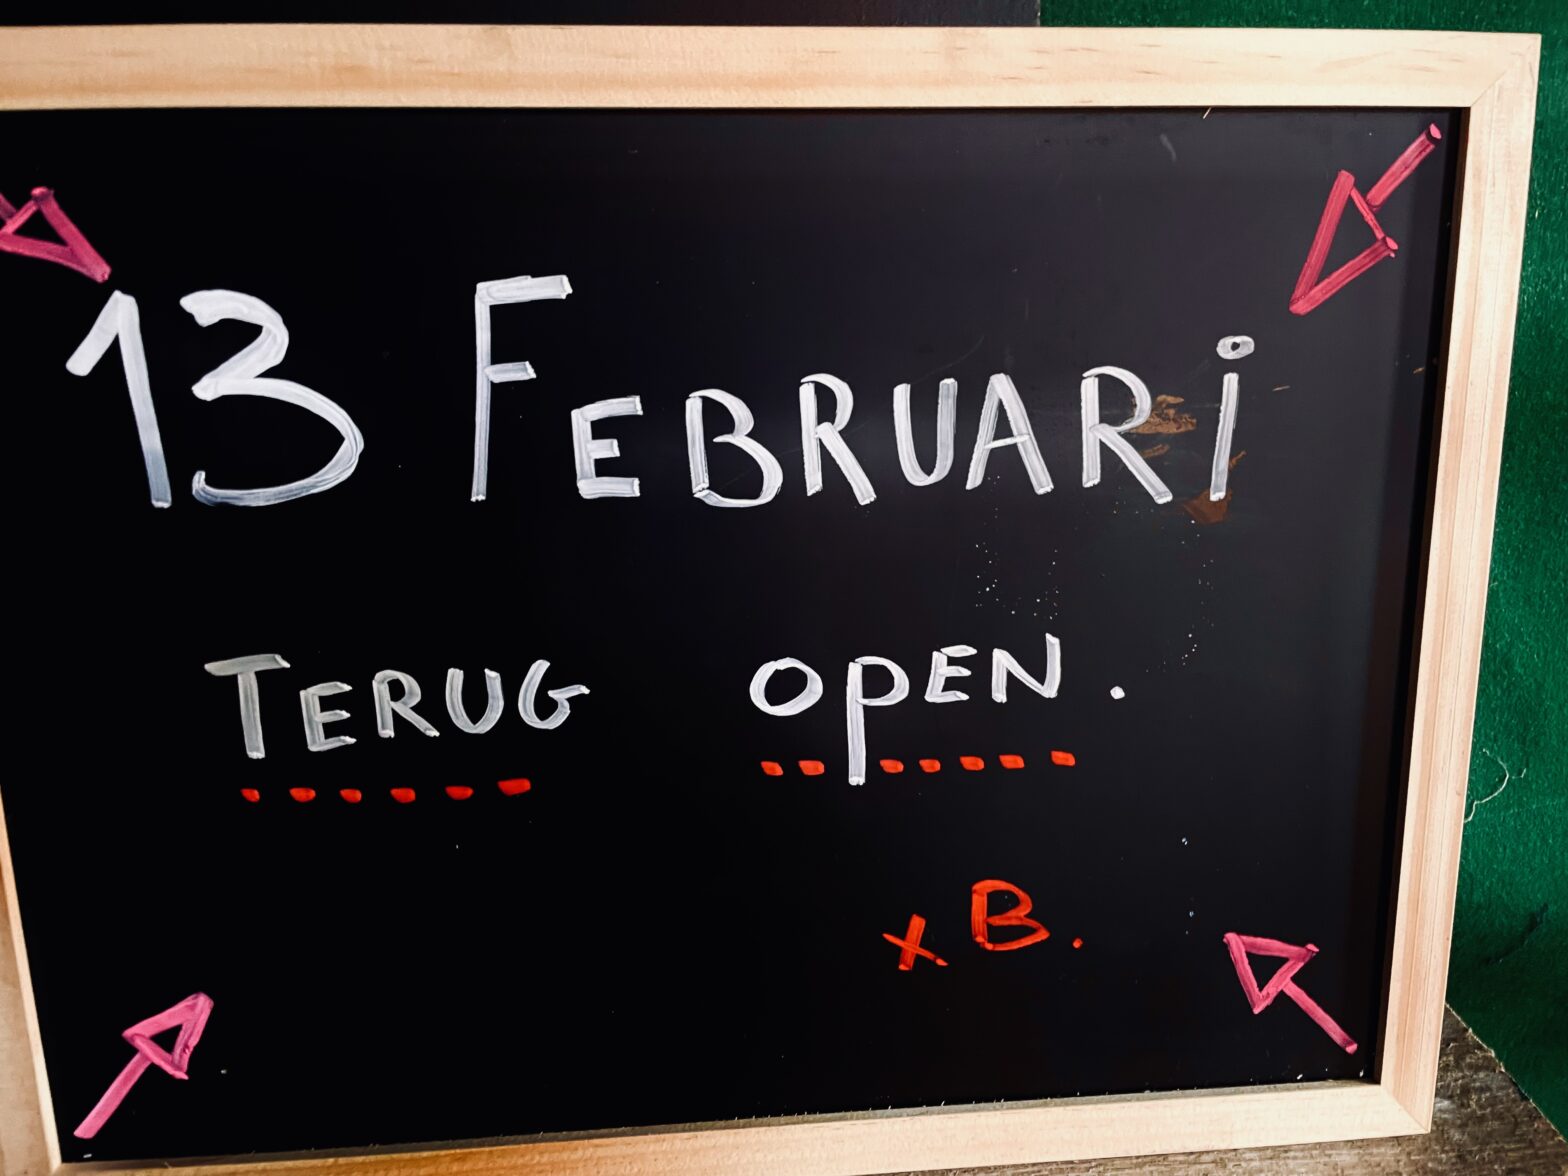 13 FEBRUARi
TERUG OPEN.
x B.